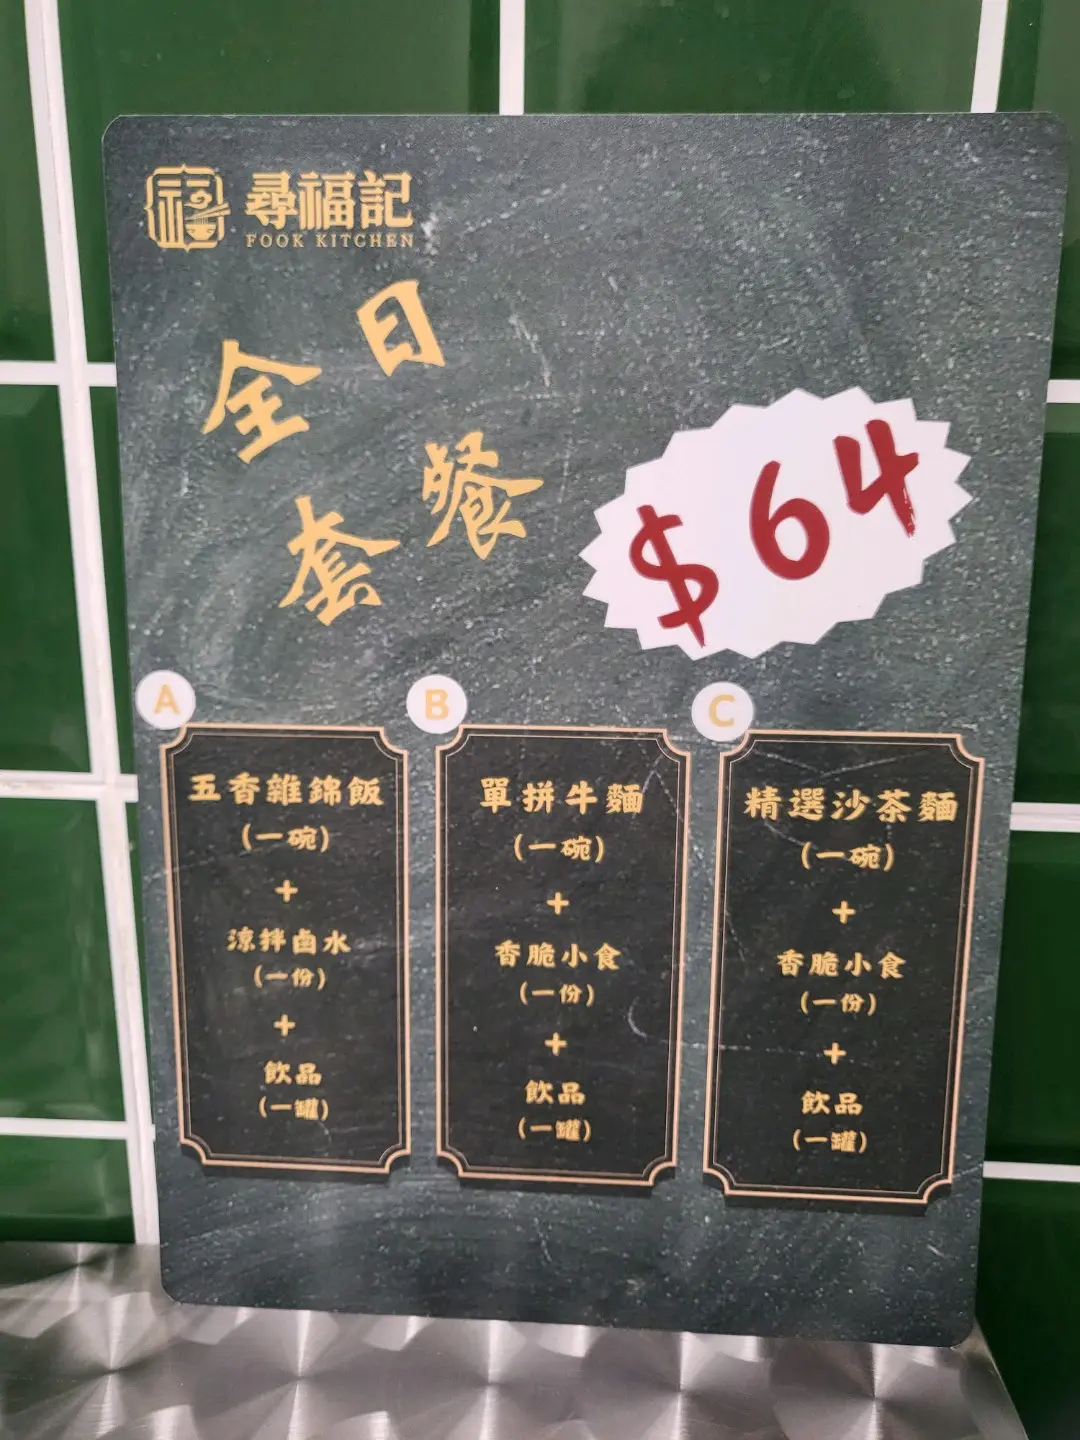 福
尋福記
FOOK KITCHEN
全日
套餐
$64
A
五香雜錦飯
(一碗)
+
涼拌鹵水
(一份)
+
飲品
(一罐)
B
單拼牛麵
(一碗)
+
香脆小食
(一份)
+
飲品
(一罐)
C
精選沙茶麵
(一碗)
+
香脆小食
(一份)
+
飲品
(一罐)